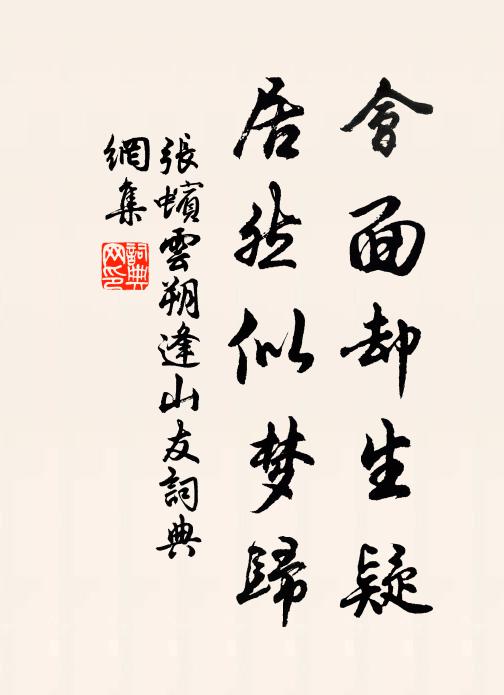 會面却生疑
居然似梦歸
張蠙雲朔逢山友詞典
網集
詞典
网印